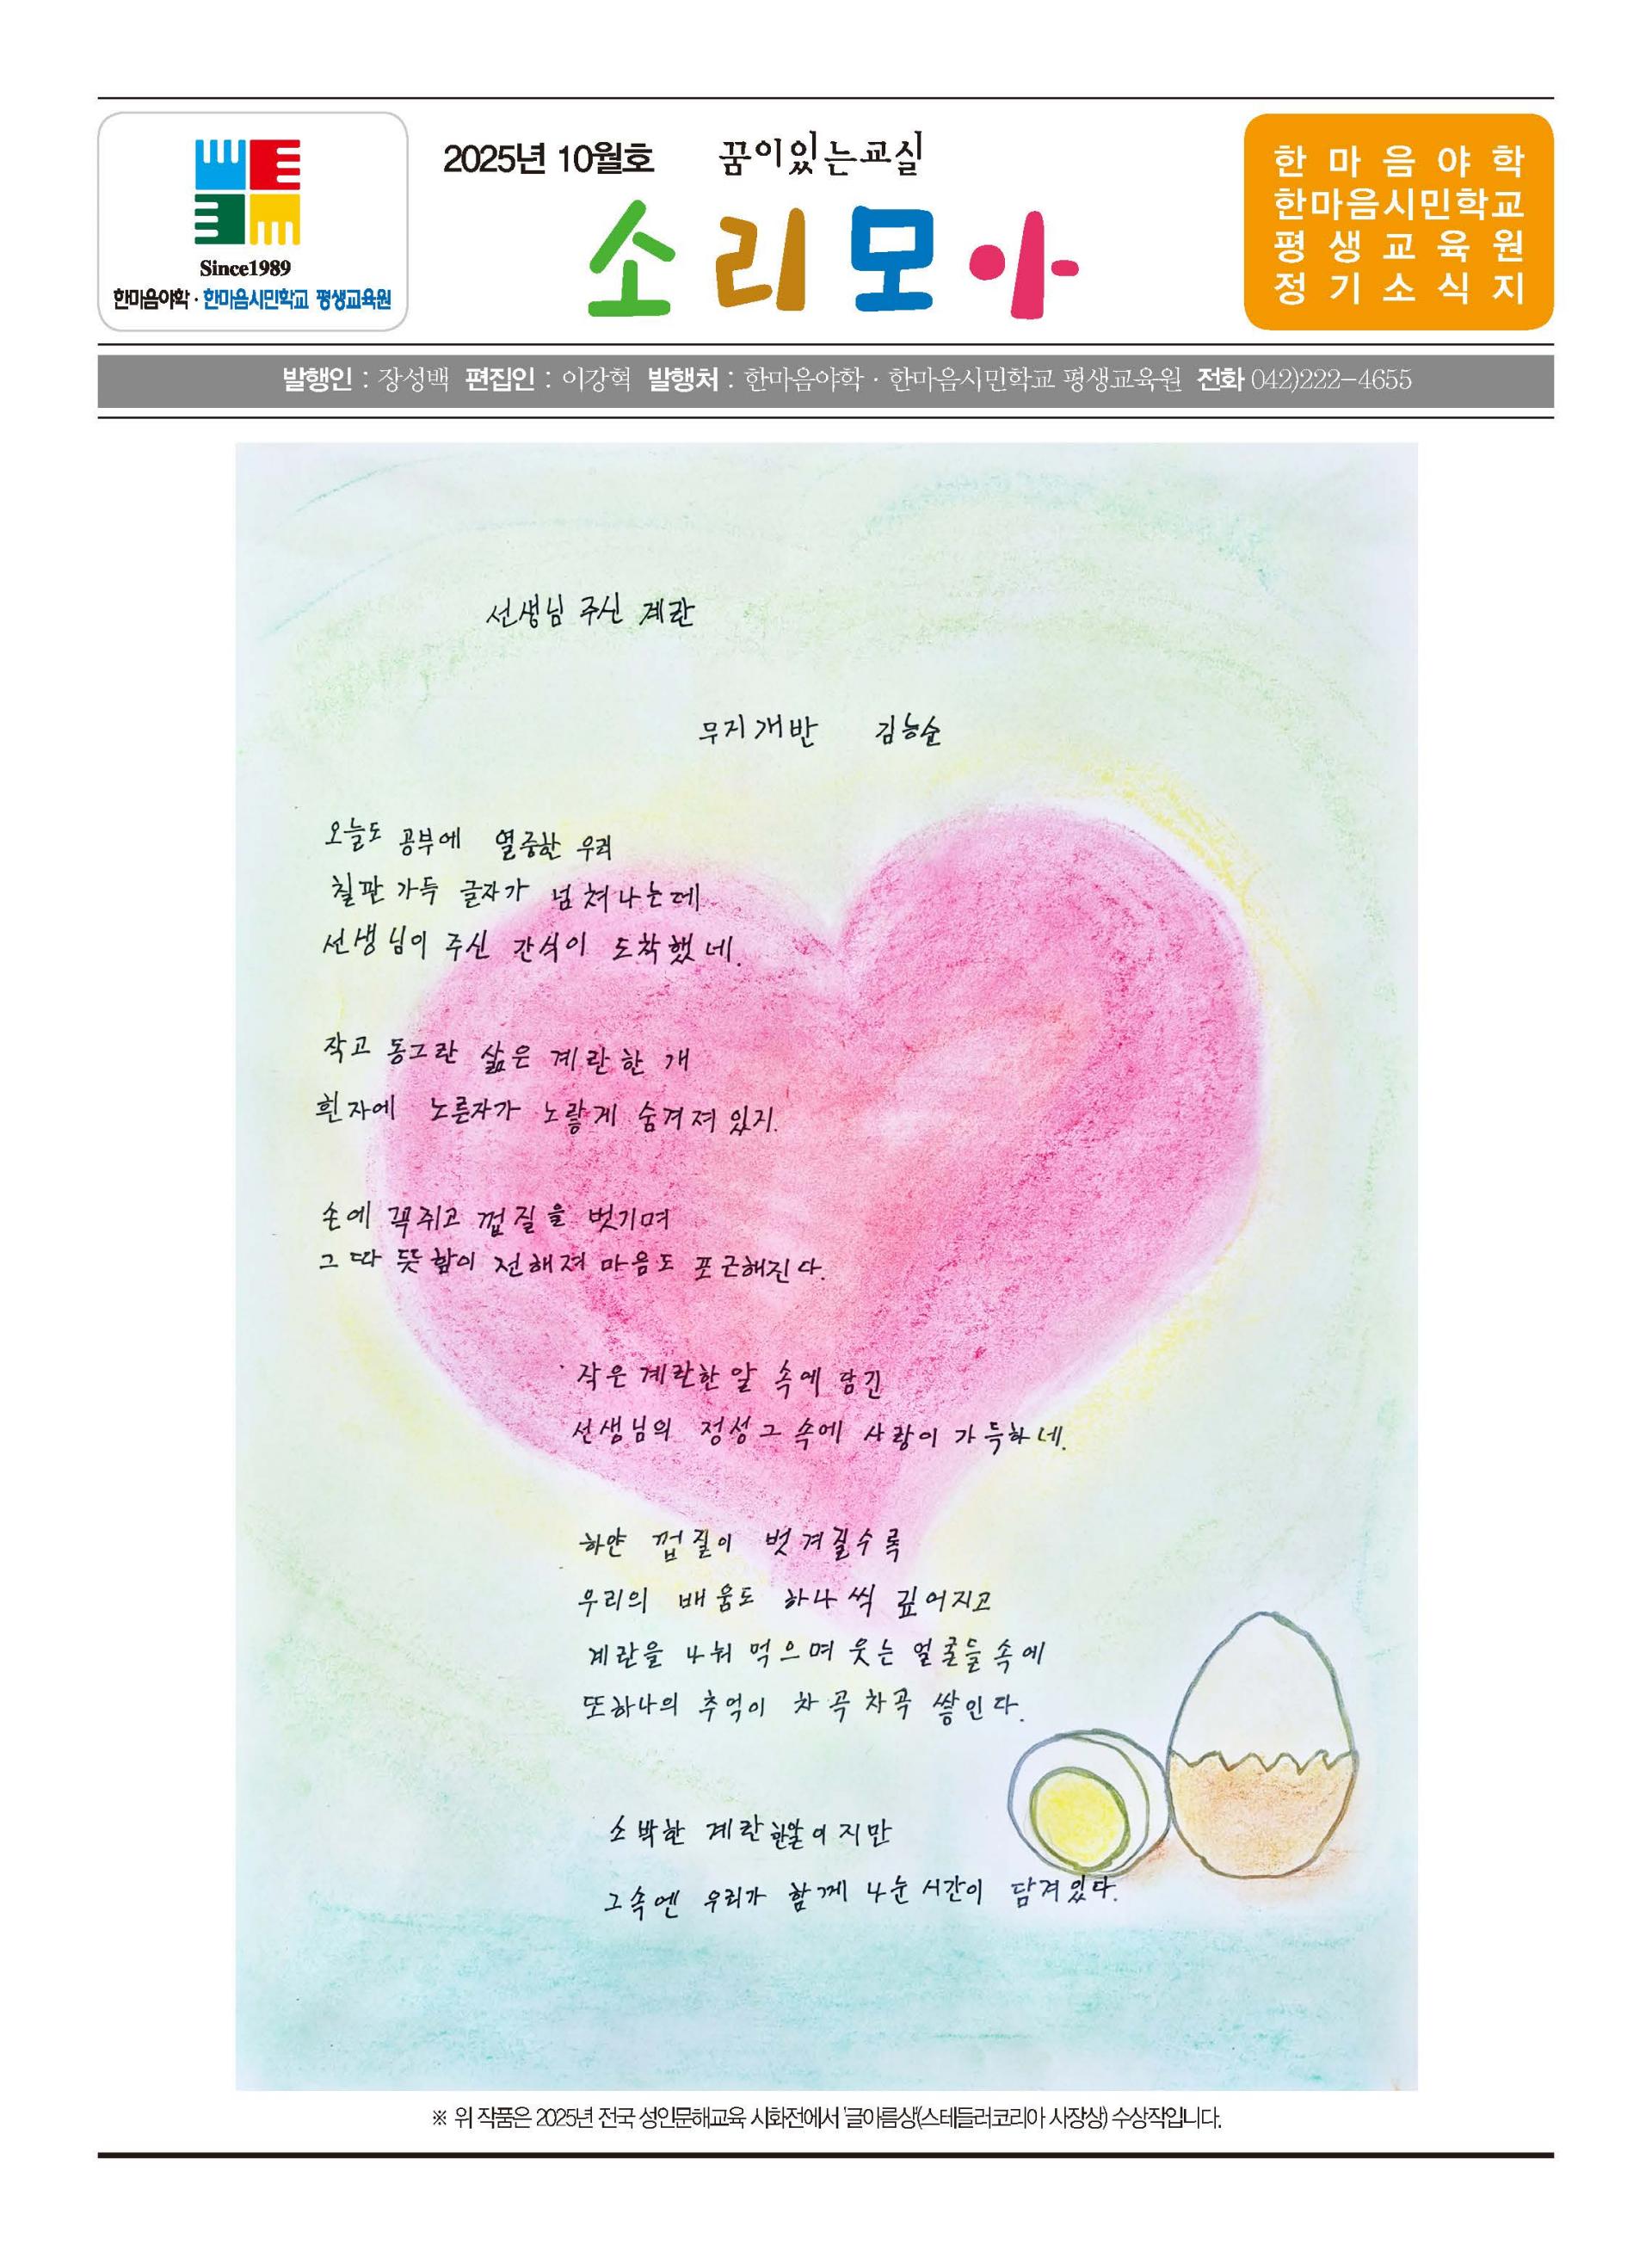 Since1989
한마음야학 · 한마음시민학교 평생교육원
2025년 10월호
꿈이있는교실
소리모아
한마음야학
한마음시민학교
평생교육원
정기소식지
발행인 : 장성백 편집인 : 이강혁 발행처 : 한마음야학 · 한마음시민학교 평생교육원 전화 042)222-4655
선생님 주신 계란
무지개반 김능순
오늘도 공부에 열중한 우리
칠판 가득 글자가 넘쳐나는데
선생님이 주신 간식이 도착했네.
작고 동그란 삶은 계란한 개
흰자에 노른자가 노랗게 숨겨져 있지.
손에 꼭쥐고 껍질을 벗기며
그 따뜻함이 전해져 마음도 포근해진다.
작은 계란한 알 속에 담긴
선생님의 정성그 속에 사랑이 가득하네.
하얀 껍질이 벗겨질수록
우리의 배움도 하나씩 깊어지고
계란을 나눠 먹으며 웃는 얼굴들 속에
또하나의 추억이 차곡차곡 쌓인다.
소박한 계란 한알이지만
그속엔 우리가 함께 나눈 시간이 담겨있다.
※ 위 작품은 2025년 전국 성인문해교육 시화전에서 '글아름상'(스테들러코리아 사장상) 수상작입니다.